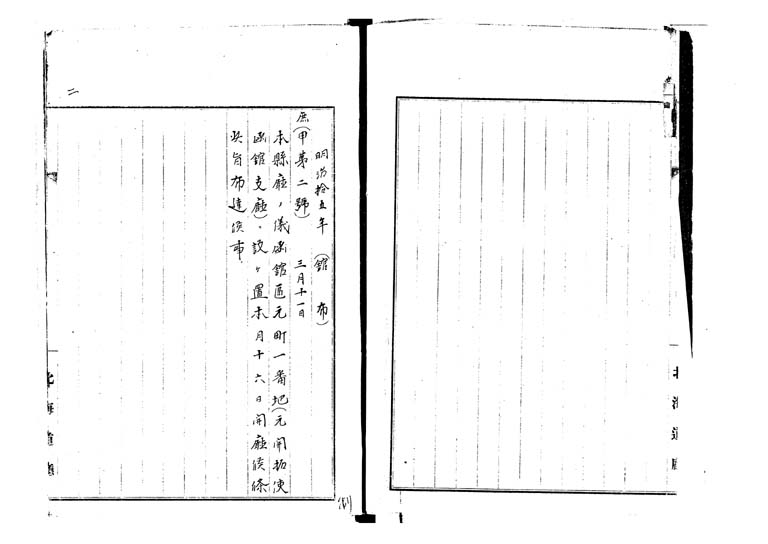 明治拾五年　(館　布)
庶(甲第二號)　三月十一日
本縣廳ノ儀函館區元町一番地(元開拓使
函館支廳)ヘ設ケ置本月十六日開廳候條
此旨布達候事
二
北海道廳
北海道廳